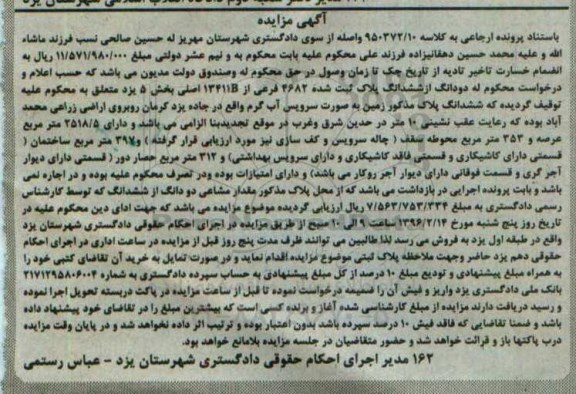 آگهی مزایده
باستناد پرونده ارجاعی به کلاسه ۹۵۰۳۷۲/۱۰ واصله از سوی دادگستری شهرستان مهریز له حسین صالحی نسب فرزند ماشاء
الله و علیه محمد حسین دهقانیزاده فرزند علی محکوم علیه بابت محکوم به و نیم عشر دولتی مبلغ ۱۱/۵۷۱/۹۸۰/۰۰۰ ریال به
انضمام خسارت تاخیر تادیه از تاریخ چک تا زمان وصول در حق محکوم له وصندوق دولت مدیون می باشد که حسب اعلام و
درخواست محکوم له دودانگ ازششدانگ پلاک ثبت شده ۴۶۸۲ فرعی از ۱۳۴۱۱B اصلی بخش ۵ یزد متعلق به محکوم علیه
توقیف گردیده که ششدانگ پلاک مذکور زمین به صورت سرویس آب گرم واقع در جاده یزد کرمان روبروی اراضی زراعی محمد
آباد بوده که رعایت عقب نشینی ۱۰ متر در حدین شرق وغرب در موقع تجدیدبنا الزامی می باشد و دارای ۲۵۱۸/۵ متر مربع
عرصه و ۳۵۳ متر مربع محوطه سقف ( چاله سرویس و کف سازی نیز مورد ارزیابی قرار گرفته ) و متر مربع ساختمان (
قسمتی دارای کاشیکاری و قسمتی فاقد کاشیکاری و دارای سرویس بهداشتی) و ۳۱۲ متر مربع حصار دور ( قسمتی دارای دیوار
آجر گری و قسمت فوقانی دارای دیوار آجر روکار می باشد) و دارای امتیازات بوده ودر تصرف محکوم علیه بوده و در اجاره نمی
باشد و بابت پرونده اجرایی در بازداشت می باشد که از محل پلاک مذکور مقدار مشاعی دو دانگ از ششدانگ که توسط کارشناس
رسمی دادگستری به مبلغ ۷/۵۶۳/۷۵۳/۳۳۴ ریال ارزیابی گردیده موضوع مزایده می باشد که جهت ادای دین محکوم علیه در
تاریخ روز پنج شنبه مورخ ۱۳۹۶/۲/۱۴ ساعت ۹ الی ۱۰ صبح از طریق مزایده در اجرای احکام حقوقی دادگستری شهرستان یزد
واقع در طبقه اول یزد به فروش می رسد لذا طالبین می توانند ظرف مدت پنج روز قبل از مزایده در ساعت اداری در اجرای احکام
حقوقی دهم یزد حاضر وجهت ملاحظه پلاک ثبتی موضوع مزایده اقدام نماید و در صورت تمایل به خرید آن تقاضای کتبی خود را
به همراه مبلغ پیشنهادی و تودیع مبلغ ۱۰ درصد از کل مبلغ پیشنهادی به حساب سپرده دادگستری به شماره ۲۱۷۱۲۹۵۸۰۶۰۰۴
بانک ملی دادگستری یزد واریز و فیش آن را ضمیمه درخواست نموده تا قبل از ساعت مزایده در پاکت دربسته تحویل اجرا نموده
و رسید دریافت دارند مزایده از مبلغ کارشناسی شده آغاز و برنده کسی است که بیشترین مبلغ را در تقاضای خود پیشنهاد داده
باشد و ضمنا تقاضایی که فاقد فیش ۱۰ درصد سپرده باشد بدون اعتبار بوده و ترتیب اثر داده نخواهد شد و در پایان وقت مزایده
درب پاکتها باز و قرائت خواهد شد و حضور متقاضیان در جلسه مزایده بلامانع خواهد بود.
۱۶۲ مدیر اجرای احکام حقوقی دادگستری شهرستان یزد - عباس رستمی